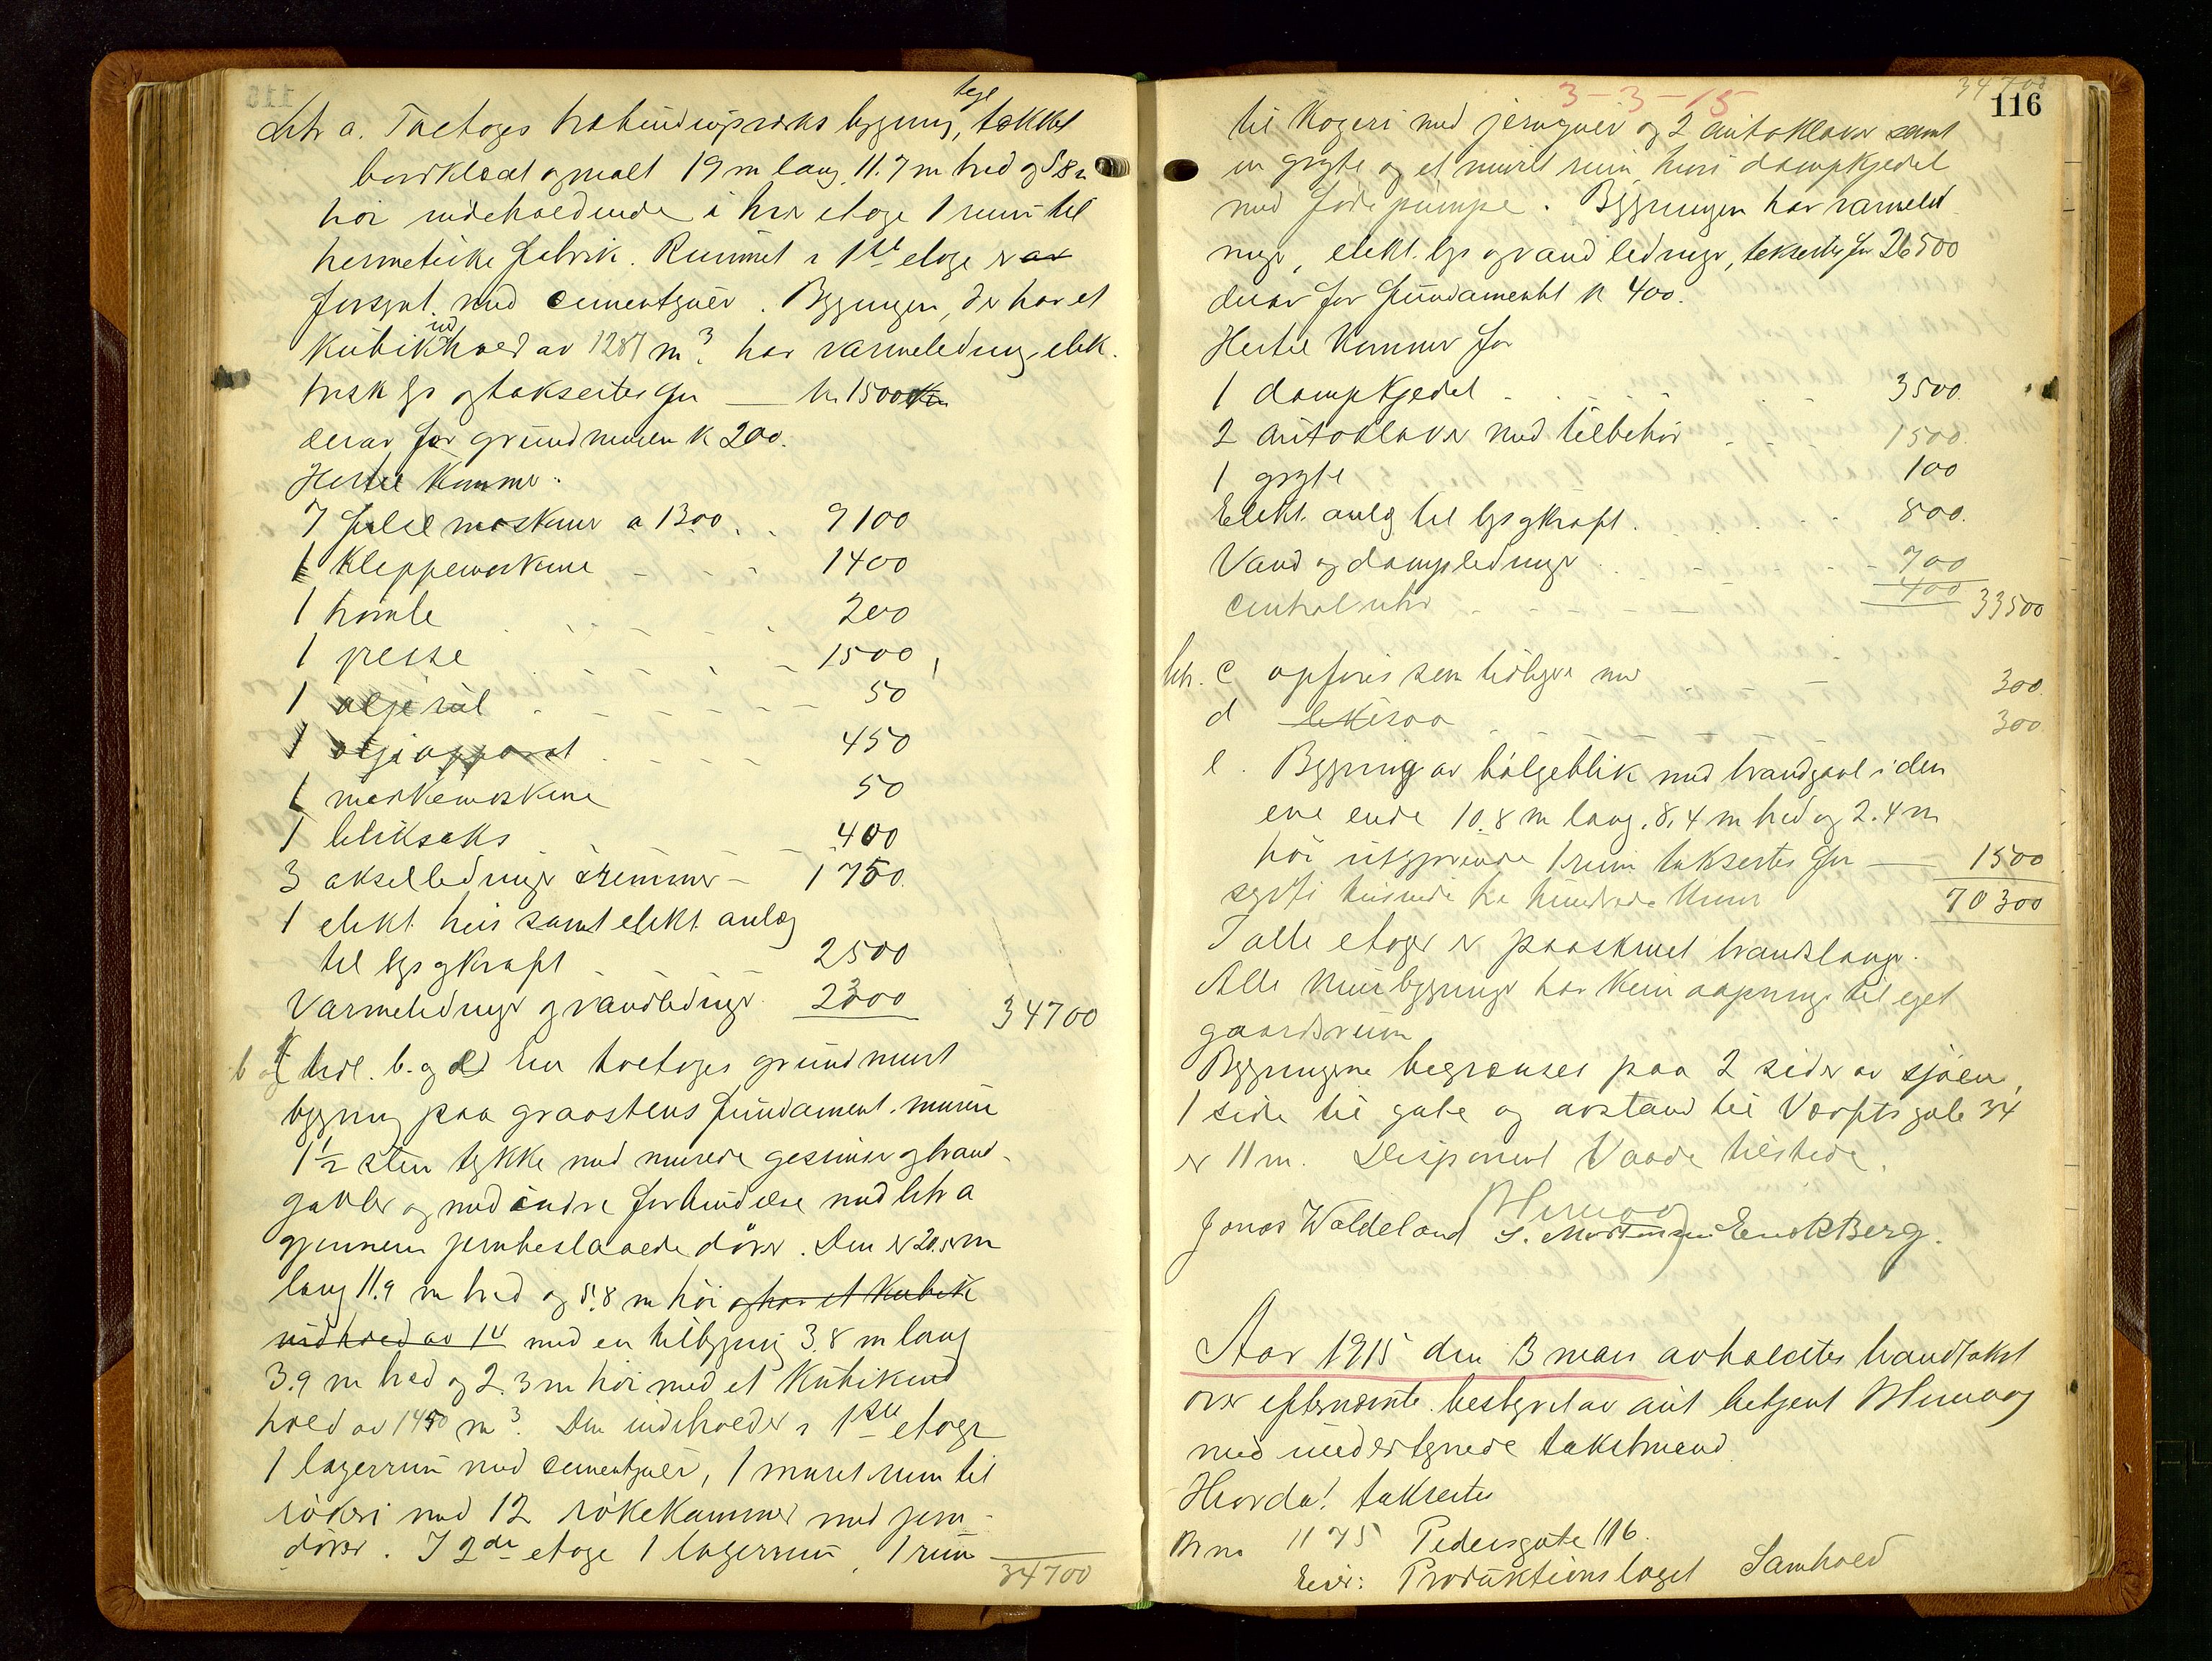 Litr a. Toetages trebindingsverks bygning, tegl tækket
bordklædt og malt 19 m lang, 11.7 m bred og 5.8 m
høi indeholdende i hver etage 1 rum til
hermetikkfabrik. Rummet i 1ste etage er av
forsynt med cementgulv. Bygningen, der har et
kubikindhold av 1287 m³. har varmeledning, elek.
trisk lys og takseres for — kr 15000
derav for grundmuren kr 200.
Hertil kommer:
7 falsemaskiner a 1300 . . 9100
1 klippemaskine - - - 1400
1 tromle 200
1 presse 1500
1 oljeriul 50
1 oljeapparat 450
1 merkemaskine 50
1 bliksaks 400
3 akselledninger & remmer - 1750.
1 elekt. heis samt elekt. anlæg
til lys og kraft 2500
Varmeledninger og vandledninger 2300 34700
b og hdl. b. og d En toetages grundmurt
bygning paa graastens fundament. murene
1½ sten tykke med murede gesimser og brand-
gavler og med indre forbindelse med litr a
gjennem jernbeslaaede døre. Den er 20.5 m
lang 11.9 m bred og 5.8 m høi og har et kubik
indhold av 14 med en tilbygning 3.8 m lang
3.9 m bred og 2.3 m høi med et kubikind
hold av 1450 m³. Den indeholder i 1ste etage
1 lagerrum med cementgulv, 1 muret rum til
røkeri med 12 røkekammer med jern-
dører. I 2den etage 1 lagerrum, 1 rum
34700
3-3-15
34700
116
til kogeri med jerngulv og 2 autoklaver samt
en gryte og et muret rum, hvori dampkjedel
med fødepumpe. Bygningen har varmeled
ninger, elekt. lys og vandledninger, takseres for 26500
derav for fundamentet kr 400.
Hertil kommer for
1 dampkjedel 3500.
2 autoklaver med tilbehør 1500.
1 gryte 100
Elekt. anlæg til lys og kraft. 800.
Vand og dampledninger 700
Centralur 400 33500
litr. c opføres som tidligere med 300.
d likesaa 300
e. Bygning av bølgeblik med brandgavl i den
ene ende 10.8 m lang, 8.4 m bred og 2.4 m
høi utgjørende 1 rum takseres for — 1500
sytti tusinde tre hundrede kroner 70300
I alle etager er paaskruet brandslange.
Alle murbygninger har kun aapninger til eget
gaardsrum
Bygningerne begrænses paa 2 sider av sjøen,
1 side til gate og avstand til Verftsgate 34
er 11 m. Disponent Vaade tilstede.
Jonas Waldeland S. Mortensen Enok Berg.
Aar 1915 den 3 mars avholdtes brandtakst
over efternævnte bestyret av aut. betjent
med undertegnede takstmænd
Hvorda! takseres
Br no 1175 Pedersgate 116.
Eier: Produktionslaget Samhold